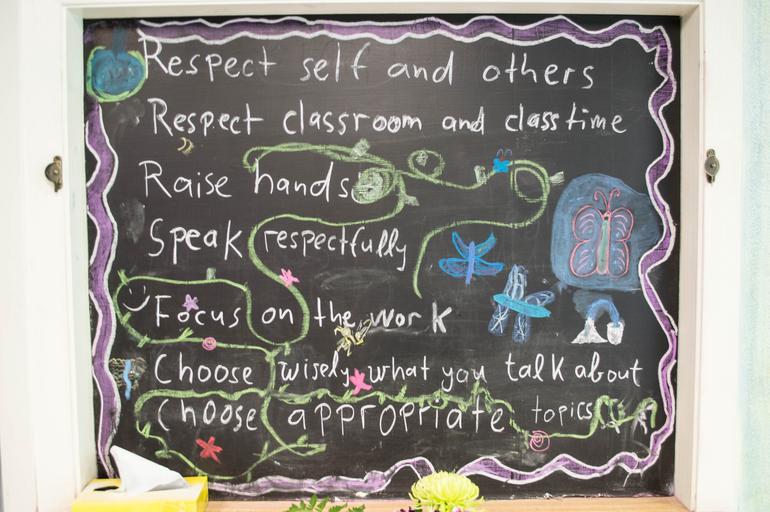 Respect self and others
Respect classroom and class time
Raise hands
Speak respectfully
Focus on the work
Choose wisely what you talk about
Choose appropriate topics